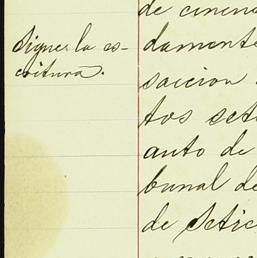 Signer la es-
critura.
de cinena
damente
saicion
tos seti
auto de
bunal de
de Setie